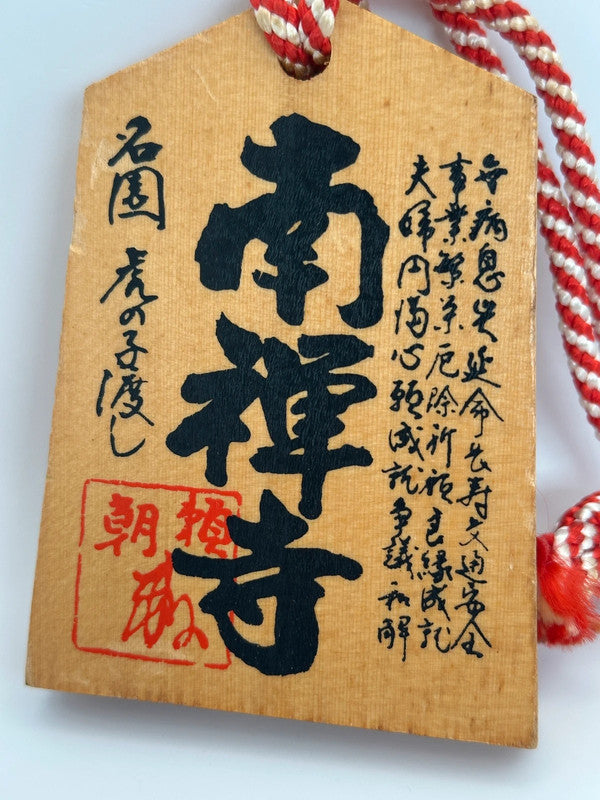 無病息災延命長寿交通安全
事業繁栄厄除祈願良縁成就
夫婦円満心願成就争議和解
南禅寺
名園 虎の子渡し
頼朝